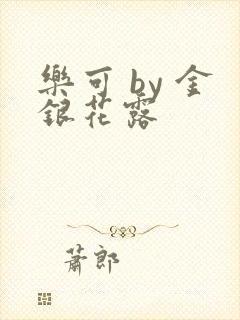 樂可 by 金
銀花露
蕭郎